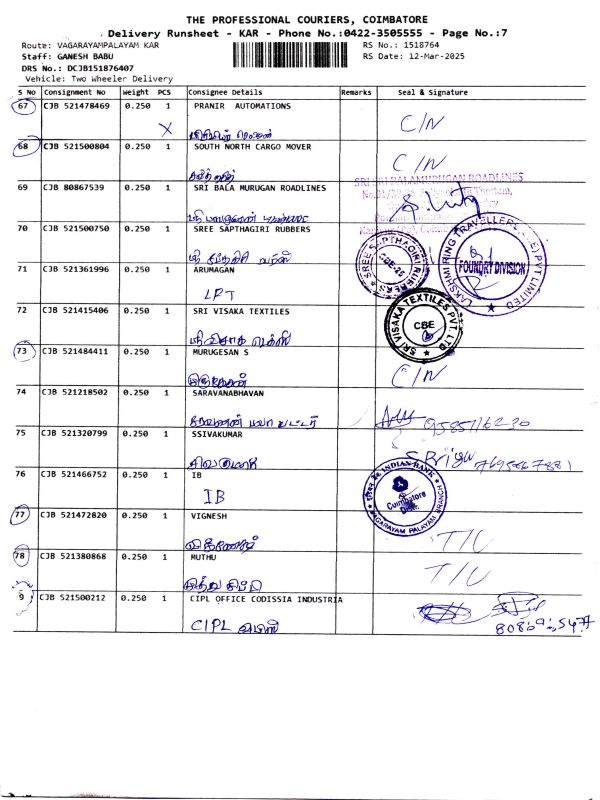 THE PROFESSIONAL COURIERS, COIMBATORE
Delivery Runsheet - KAR - Phone No.:0422-3505555 - Page No.:7
Route: VAGARAYAMPALAYAM KAR
RS No.: 1518764
Staff: GANESH BABU
RS Date: 12-Mar-2025
DRS No.: DCJB151876407
Vehicle: Two Wheeler Delivery
S No Consignment No Weight PCS Consignee Details Remarks Seal & Signature
67 CJB 521478469 0.250 1 PRANIR AUTOMATIONS
X
C/N
68 CJB 521500804 0.250 1 SOUTH NORTH CARGO MOVER
C/N
69 CJB 80867539 0.250 1 SRI BALA MURUGAN ROADLINES
SRI SRI BALAMURUGAN ROADLINES
70 CJB 521500750 0.250 1 SREE SAPTHAGIRI RUBBERS
SREE SAPTHAGIRI RUBBERS
CBE-25
LAKSHMI RING TRAVELLERS (CBE) PVT LIMITED
FOUNDRY DIVISION
71 CJB 521361996 0.250 1 ARUMAGAN
LRT
72 CJB 521415406 0.250 1 SRI VISAKA TEXTILES
SRI VISAKA TEXTILES PVT. LTD
CBE
73 CJB 521484411 0.250 1 MURUGESAN S
முருகேசன்
C/N
74 CJB 521218502 0.250 1 SARAVANABHAVAN
75 CJB 521320799 0.250 1 SSIVAKUMAR
சிவகுமார்
76 CJB 521466752 0.250 1 IB
IB
INDIAN BANK
Coimbatore Dist.
VAGARAYAM PALAYAM BRANCH
77 CJB 521472820 0.250 1 VIGNESH
விக்னேஷ்
T/U
78 CJB 521380868 0.250 1 MUTHU
T/U
9 CJB 521500212 0.250 1 CIPL OFFICE CODISSIA INDUSTRIA
CIPL